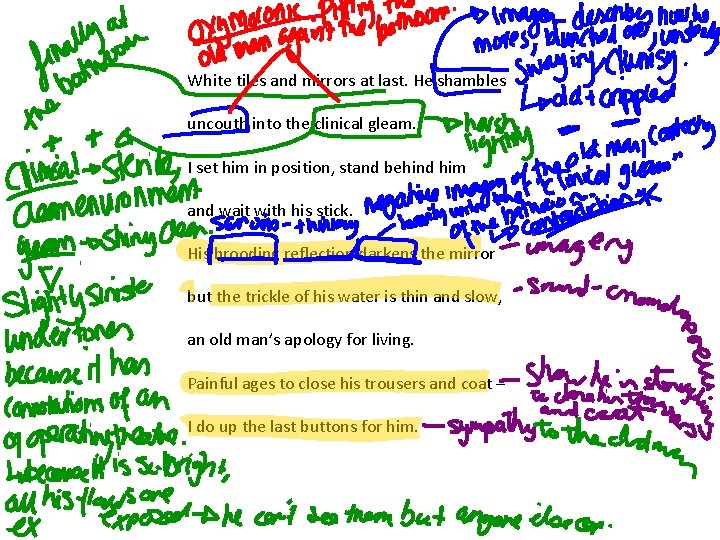 finally at
the bathroom
Oxymoronic - pitting the
old man against the bathroom.
Imagery - describes how he
moves, hunched over, unsteady
sway in / clumsy.
old + crippled
White tiles and mirrors at last. He shambles
uncouth into the clinical gleam.
harsh
lighting
I set him in position, stand behind him
and wait with his stick.
negative imagery of the old man contrasting
of the bathroom
contradiction
serious - thinking
His brooding reflection darkens the mirror
- imagery
but the trickle of his water is thin and slow,
- sound - onomatopoeia
an old man's apology for living.
Painful ages to close his trousers and coat –
- Show he is struggling
to close his trousers
and coat
I do up the last buttons for him.
- sympathy to the old man
Clinical → sterile,
clean environment
gleam → shiny clean.
Slightly sinister
undertones
because it has
connotations of an
operating theatre.
because it is so bright,
all his flaws are
ex
exposed → he can't see them but anyone else can.